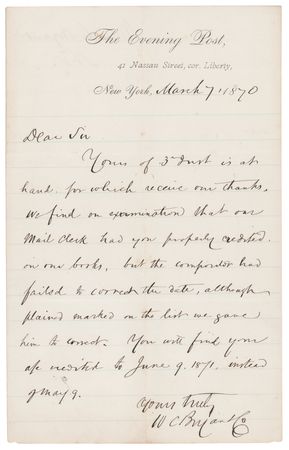 The Evening Post,
41 Nassau Street, cor. Liberty,
New York, March 7, 1870
Dear Sir
Yours of 3d Inst is at
hand, for which receive our thanks.
We find on examination that our
Mail Clerk had you properly credited
on our books, but the compositor had
failed to correct the date, although
plained marked on the list we gave
him to correct. You will find your
credited to June 9, 1871, instead
of May 9.
Yours truly
W C Bryant & Co